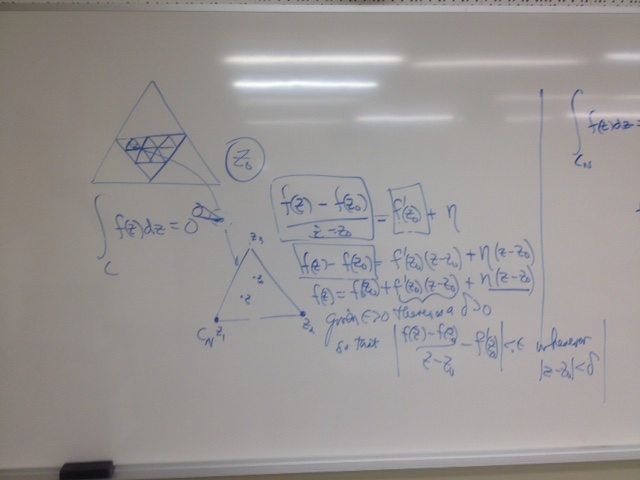 z₀
∫_C f(z)dz = 0
(f(z) − f(z₀))/(z − z₀) = f'(z₀) + η
f(z) − f(z₀) = f'(z₀)(z−z₀) + η(z−z₀)
f(z) = f(z₀) + f'(z₀)(z−z₀) + η(z−z₀)
given ε>0 there is a δ>0
so that |(f(z)−f(z₀))/(z−z₀) − f'(z₀)| < ε whenever
|z−z₀| < δ
z₃
·z₀
·z
C_N z₁ z₂
∫_{C_N} f(z)dz =